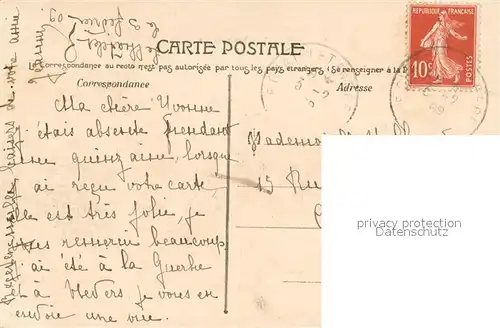 le 3 février 09
CARTE POSTALE
La Correspondance au recto n'est pas autorisée par tous les pays étrangers (Se renseigner à la P
Correspondance
Adresse
RÉPUBLIQUE FRANÇAISE
10c
POSTES
Ma chère Yvonne
J'étais absente pendant
une quinzaine, lorsque
j'ai reçu votre carte
elle est très jolie, je
vous remercie beaucoup
j'ai été à la Guerche
et à Nevers je vous en
envoie une vue.
baisers de votre amie
Mademoiselle
15 Ru
privacy protection
Datenschutz